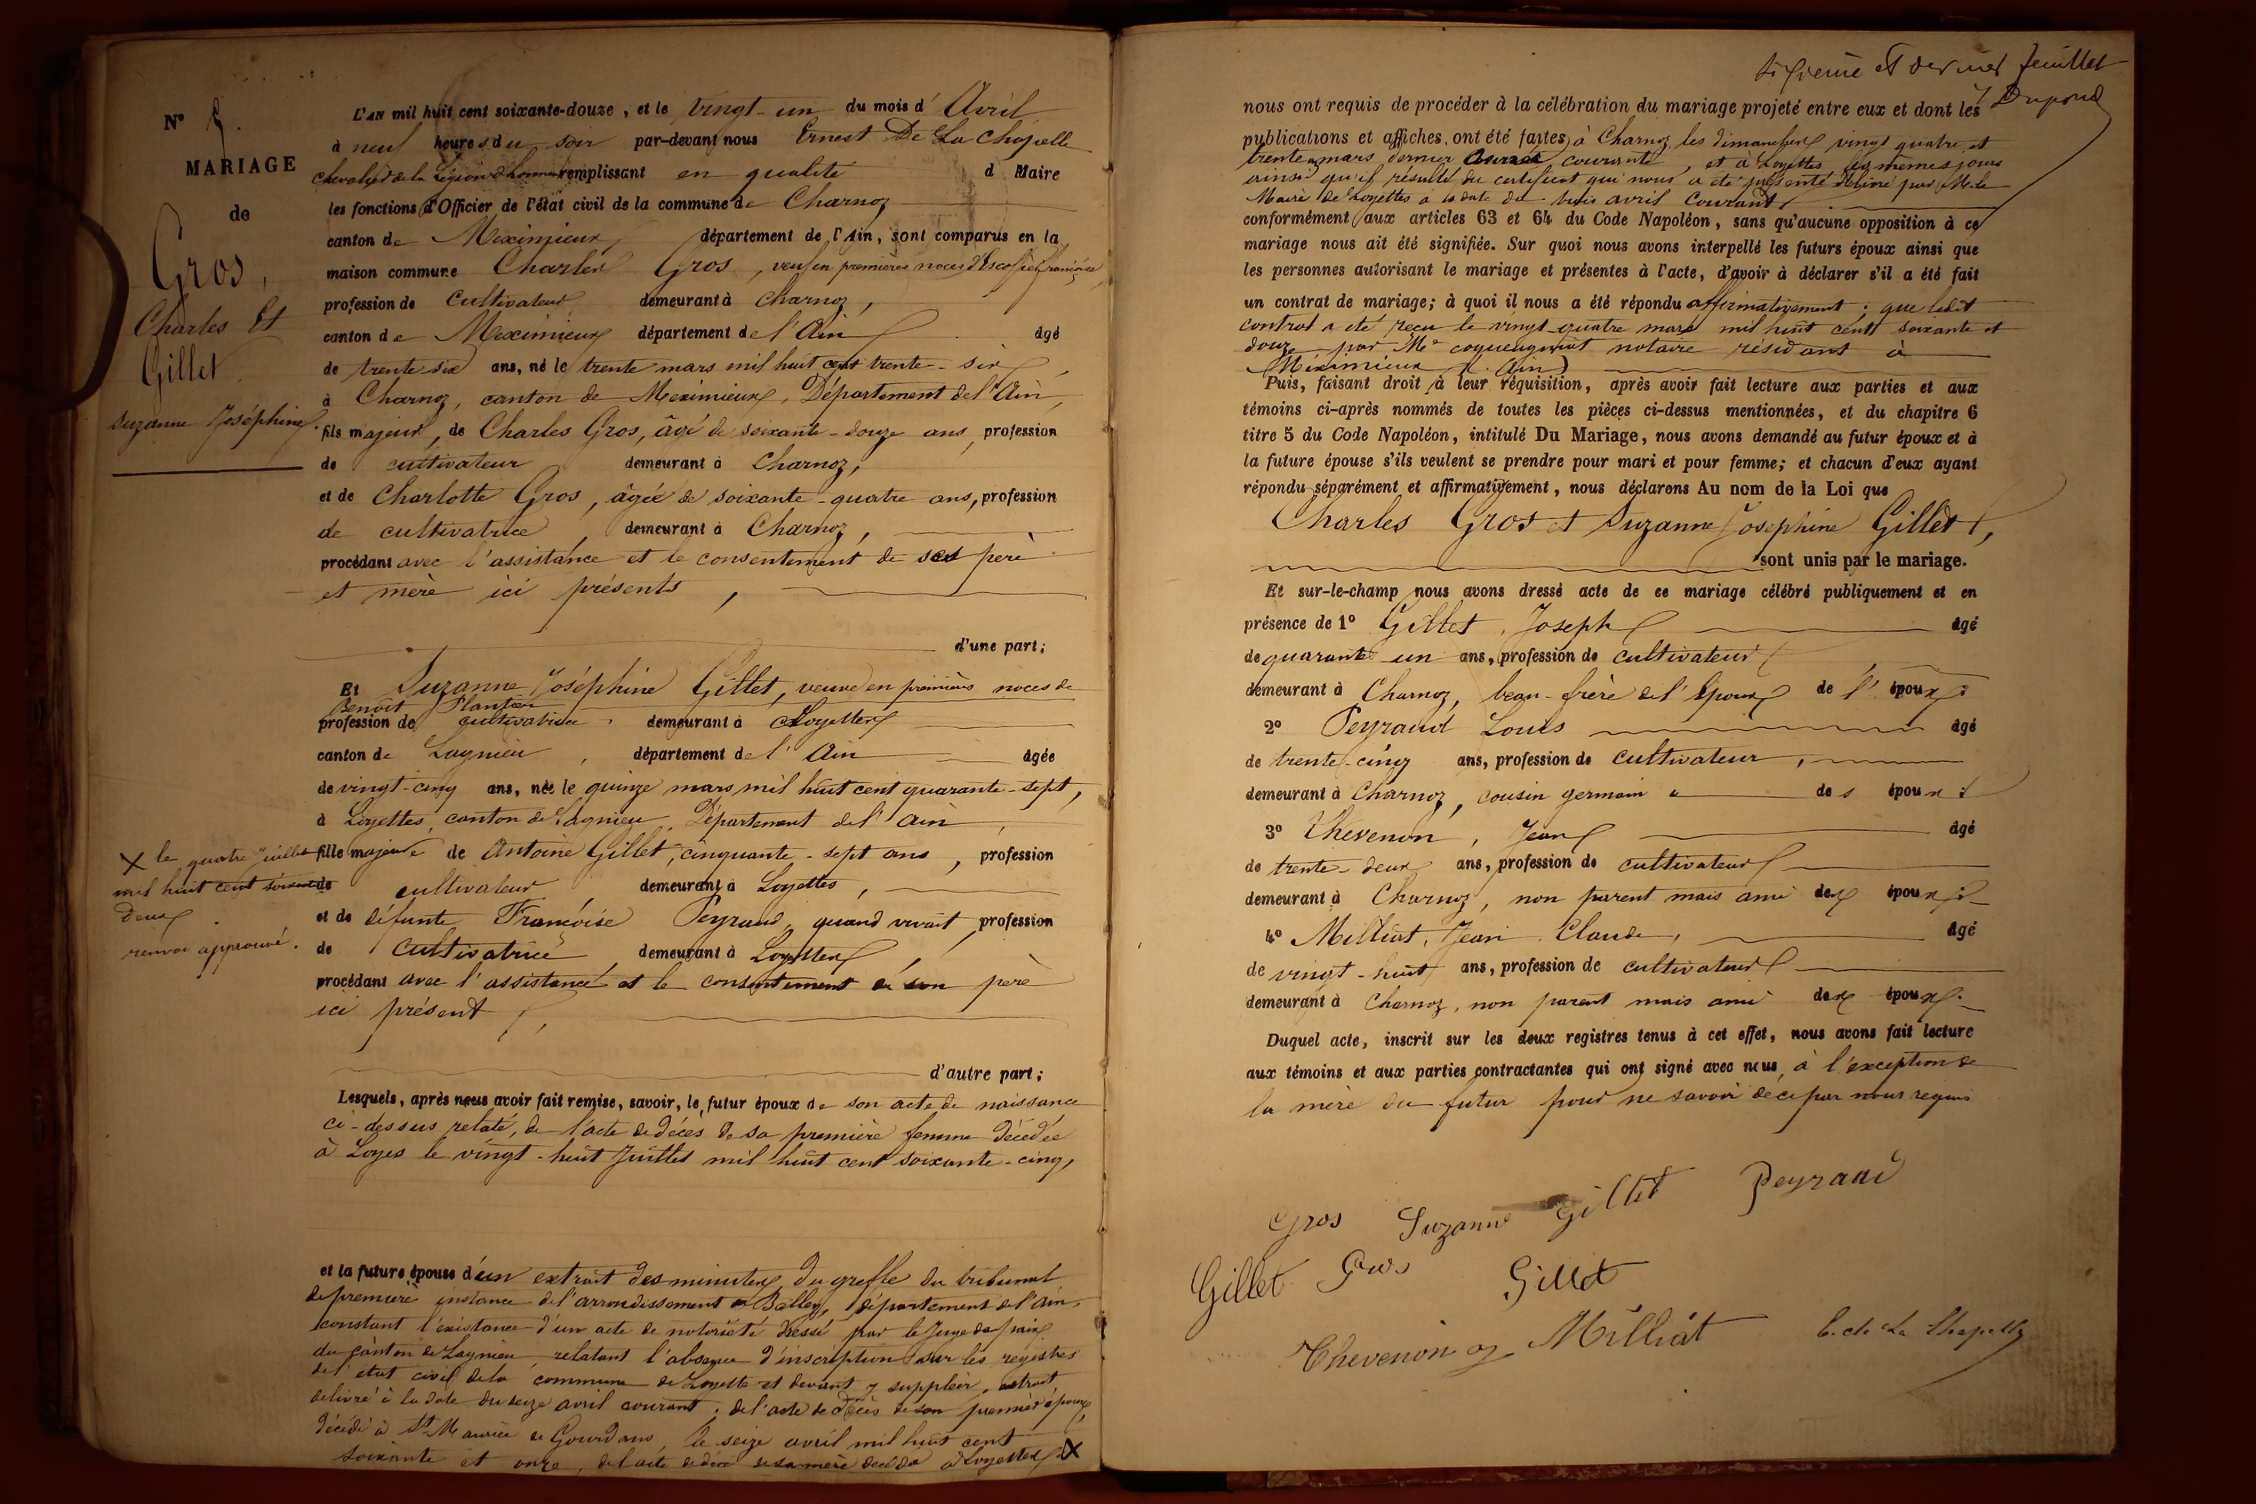 N° 5.
MARIAGE
de
Gros,
Charles Et
Gillet
Suzanne Joséphine.
L'AN mil huit cent soixante-douze, et le vingt-un du mois d'Avril
à neuf heures du soir par-devant nous Ernest De La Chapelle
chevalier de la Légion d'honneur remplissant en qualité d Maire
les fonctions d'Officier de l'état civil de la commune de Charnoz
canton de Meximieux département de l'Ain, sont comparus en la
maison commune Charles Gros, veuf en premières noces d'Escoffier Françoise
profession de cultivateur demeurant à Charnoz,
canton de Meximieux département de l'Ain âgé
de trente-six ans, né le trente mars mil huit cent trente-six,
à Charnoz, canton de Meximieux, Département de l'Ain,
fils majeur, de Charles Gros, âgé de soixante-douze ans, profession
de cultivateur demeurant à Charnoz,
et de Charlotte Gros, âgée de soixante-quatre ans, profession
de cultivatrice, demeurant à Charnoz,
procédant avec l'assistance et le consentement de ses père
et mère ici présents,
d'une part;
Et Suzanne Joséphine Gillet, veuve en premières noces de
Benoit Plantier
profession de cultivatrice, demeurant à Loyettes
canton de Lagnieu, département de l'Ain âgée
de vingt-cinq ans, née le quinze mars mil huit cent quarante-sept,
à Loyettes, canton de Lagnieu, Département de l'Ain,
fille majeure de Antoine Gillet, cinquante-sept ans, profession
de cultivateur demeurant à Loyettes,
et de défunte Françoise Peyraud, quand vivait profession
de cultivatrice, demeurant à Loyettes,
procédant avec l'assistance et le consentement de son père
ici présent,
d'autre part;
X le quatre Juillet
mil huit cent soixante
deux
renvoi approuvé.
Lesquels, après nous avoir fait remise, savoir, le futur époux de son acte de naissance
ci-dessus relaté, de l'acte de décès de sa première femme décédée
à Loyes le vingt-huit Juillet mil huit cent soixante-cinq,
et la future épouse d'un extrait des minutes du greffe du tribunal
de première instance de l'arrondissement de Belley, département de l'Ain,
constant l'existance d'un acte de notoriété dressé par le Juge de paix
du canton de Lagnieu, relatant l'absence d'inscription sur les registres
de l'état civil de la commune de Loyette et devant y suppléer, extrait
délivré à la date du seize avril courant; de l'acte de décès de son premier époux,
décédé à St Maurice de Gourdans, le seize avril mil huit cent
soixante et onze, de l'acte de décès de sa mère décédée à Loyettes X
sixième et dernier feuillet
Dupond
nous ont requis de procéder à la célébration du mariage projeté entre eux et dont les
publications et affiches ont été faites à Charnoz les dimanches vingt quatre et
trente mars dernier courante, et à Loyettes les mêmes jours
ainsi qu'il résulte du certificat qui nous a été présenté délivré par M. le
Maire de Loyettes à la date du trois avril courant,
conformément aux articles 63 et 64 du Code Napoléon, sans qu'aucune opposition à ce
mariage nous ait été signifiée. Sur quoi nous avons interpellé les futurs époux ainsi que
les personnes autorisant le mariage et présentes à l'acte, d'avoir à déclarer s'il a été fait
un contrat de mariage; à quoi il nous a été répondu affirmativement; que ledit
contrat a été reçu le vingt-quatre mars mil huit cent soixante et
douze par Me notaire résidant à
Meximieux (Ain)
Puis, faisant droit à leur réquisition, après avoir fait lecture aux parties et aux
témoins ci-après nommés de toutes les pièces ci-dessus mentionnées, et du chapitre 6
titre 5 du Code Napoléon, intitulé Du Mariage, nous avons demandé au futur époux et à
la future épouse s'ils veulent se prendre pour mari et pour femme; et chacun d'eux ayant
répondu séparément et affirmativement, nous déclarons Au nom de la Loi que
Charles Gros et Suzanne Josephine Gillet,
sont unis par le mariage.
Et sur-le-champ nous avons dressé acte de ce mariage célébré publiquement et en
présence de 1° Gillet, Joseph âgé
de quarante-un ans, profession de cultivateur
demeurant à Charnoz, beau-frère de l'époux de l'époux;
2° Peyraud Louis âgé
de trente-cinq ans, profession de cultivateur,
demeurant à Charnoz, cousin germain des époux;
3° Thevenon, Jean âgé
de trente-deux ans, profession de cultivateur
demeurant à Charnoz, non parent mais ami des époux;
4° Milliat, Jean Claude, âgé
de vingt-huit ans, profession de cultivateur
demeurant à Charnoz, non parent mais ami des époux.
Duquel acte, inscrit sur les deux registres tenus à cet effet, nous avons fait lecture
aux témoins et aux parties contractantes qui ont signé avec nous, à l'exception de
la mère du futur pour ne savoir de ce par nous requis
Gros Suzanne Gillet Peyraud
Gillet Gros Gillet
Thevenon Milliat E. de La Chapelle